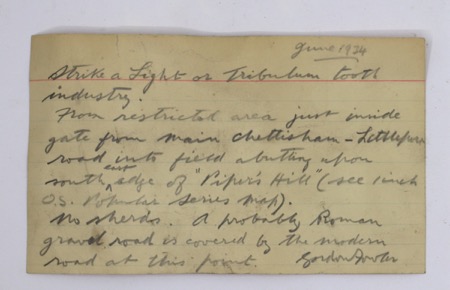 June 1934
Strike a Light or Tribulum tooth
industry.
From restricted area just inside
gate from main Chettisham - Littleport
road into field abutting upon
south east edge of "Piper's Hill" (see 1 inch
O.S. Popular Series map).
No sherds. A probably Roman
gravel road is covered by the modern
road at this point. Gordon Fowler